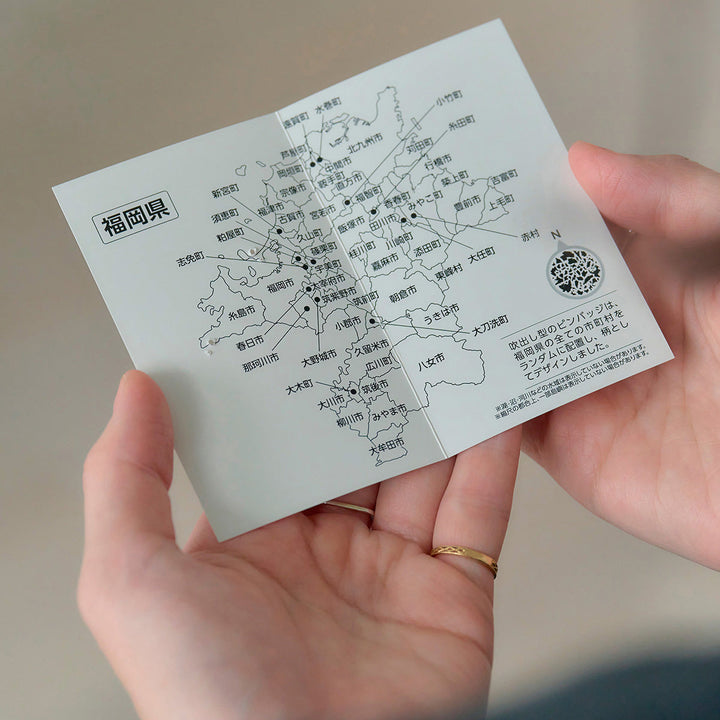 福岡県
遠賀町
水巻町
小竹町
芦屋町
北九州市
糸田町
岡垣町
中間市
苅田町
新宮町
宗像市
鞍手町
直方市
行橋市
須恵町
福津市
古賀市
宮若市
福智町
香春町
みやこ町
築上町
吉富町
粕屋町
久山町
飯塚市
田川市
豊前市
上毛町
志免町
篠栗町
宇美町
桂川町
川崎町
添田町
大任町
赤村
N
福岡市
太宰府市
嘉麻市
東峰村
糸島市
筑紫野市
筑前町
朝倉市
春日市
小郡市
うきは市
大刀洗町
那珂川市
大野城市
久留米市
広川町
八女市
大木町
大川市
筑後市
柳川市
みやま市
大牟田市
吹出し型のピンバッジは、
福岡県の全ての市町村を
ランダムに配置し、柄とし
てデザインしました。
※湖・沼・河川などの水域は表示していない場合があります。
※縮尺の都合上、一部島嶼は表示していない場合があります。